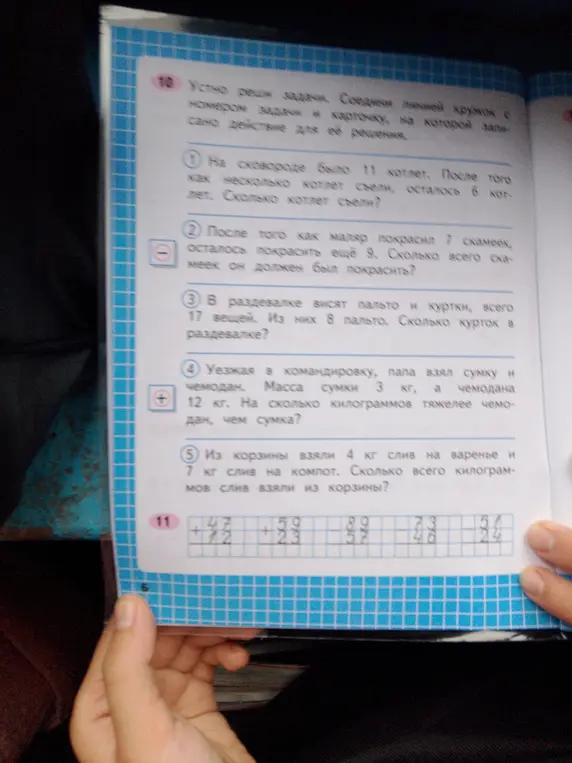 10 Устно реши задачи. Соедини линией кружок с
номером задачи и карточку, на которой запи-
сано действие для её решения.
1 На сковороде было 11 котлет. После того
как несколько котлет съели, осталось 6 кот-
лет. Сколько котлет съели?
2 После того как маляр покрасил 7 скамеек,
осталось покрасить ещё 9. Сколько всего ска-
меек он должен был покрасить?
−
3 В раздевалке висят пальто и куртки, всего
17 вещей. Из них 8 пальто. Сколько курток в
раздевалке?
4 Уезжая в командировку, папа взял сумку и
чемодан. Масса сумки 3 кг, а чемодана
12 кг. На сколько килограммов тяжелее чемо-
дан, чем сумка?
+
5 Из корзины взяли 4 кг слив на варенье и
7 кг слив на компот. Сколько всего килограм-
мов слив взяли из корзины?
11 + 47 + 59 − 89 − 73 − 51
12 23 57 46 24
6